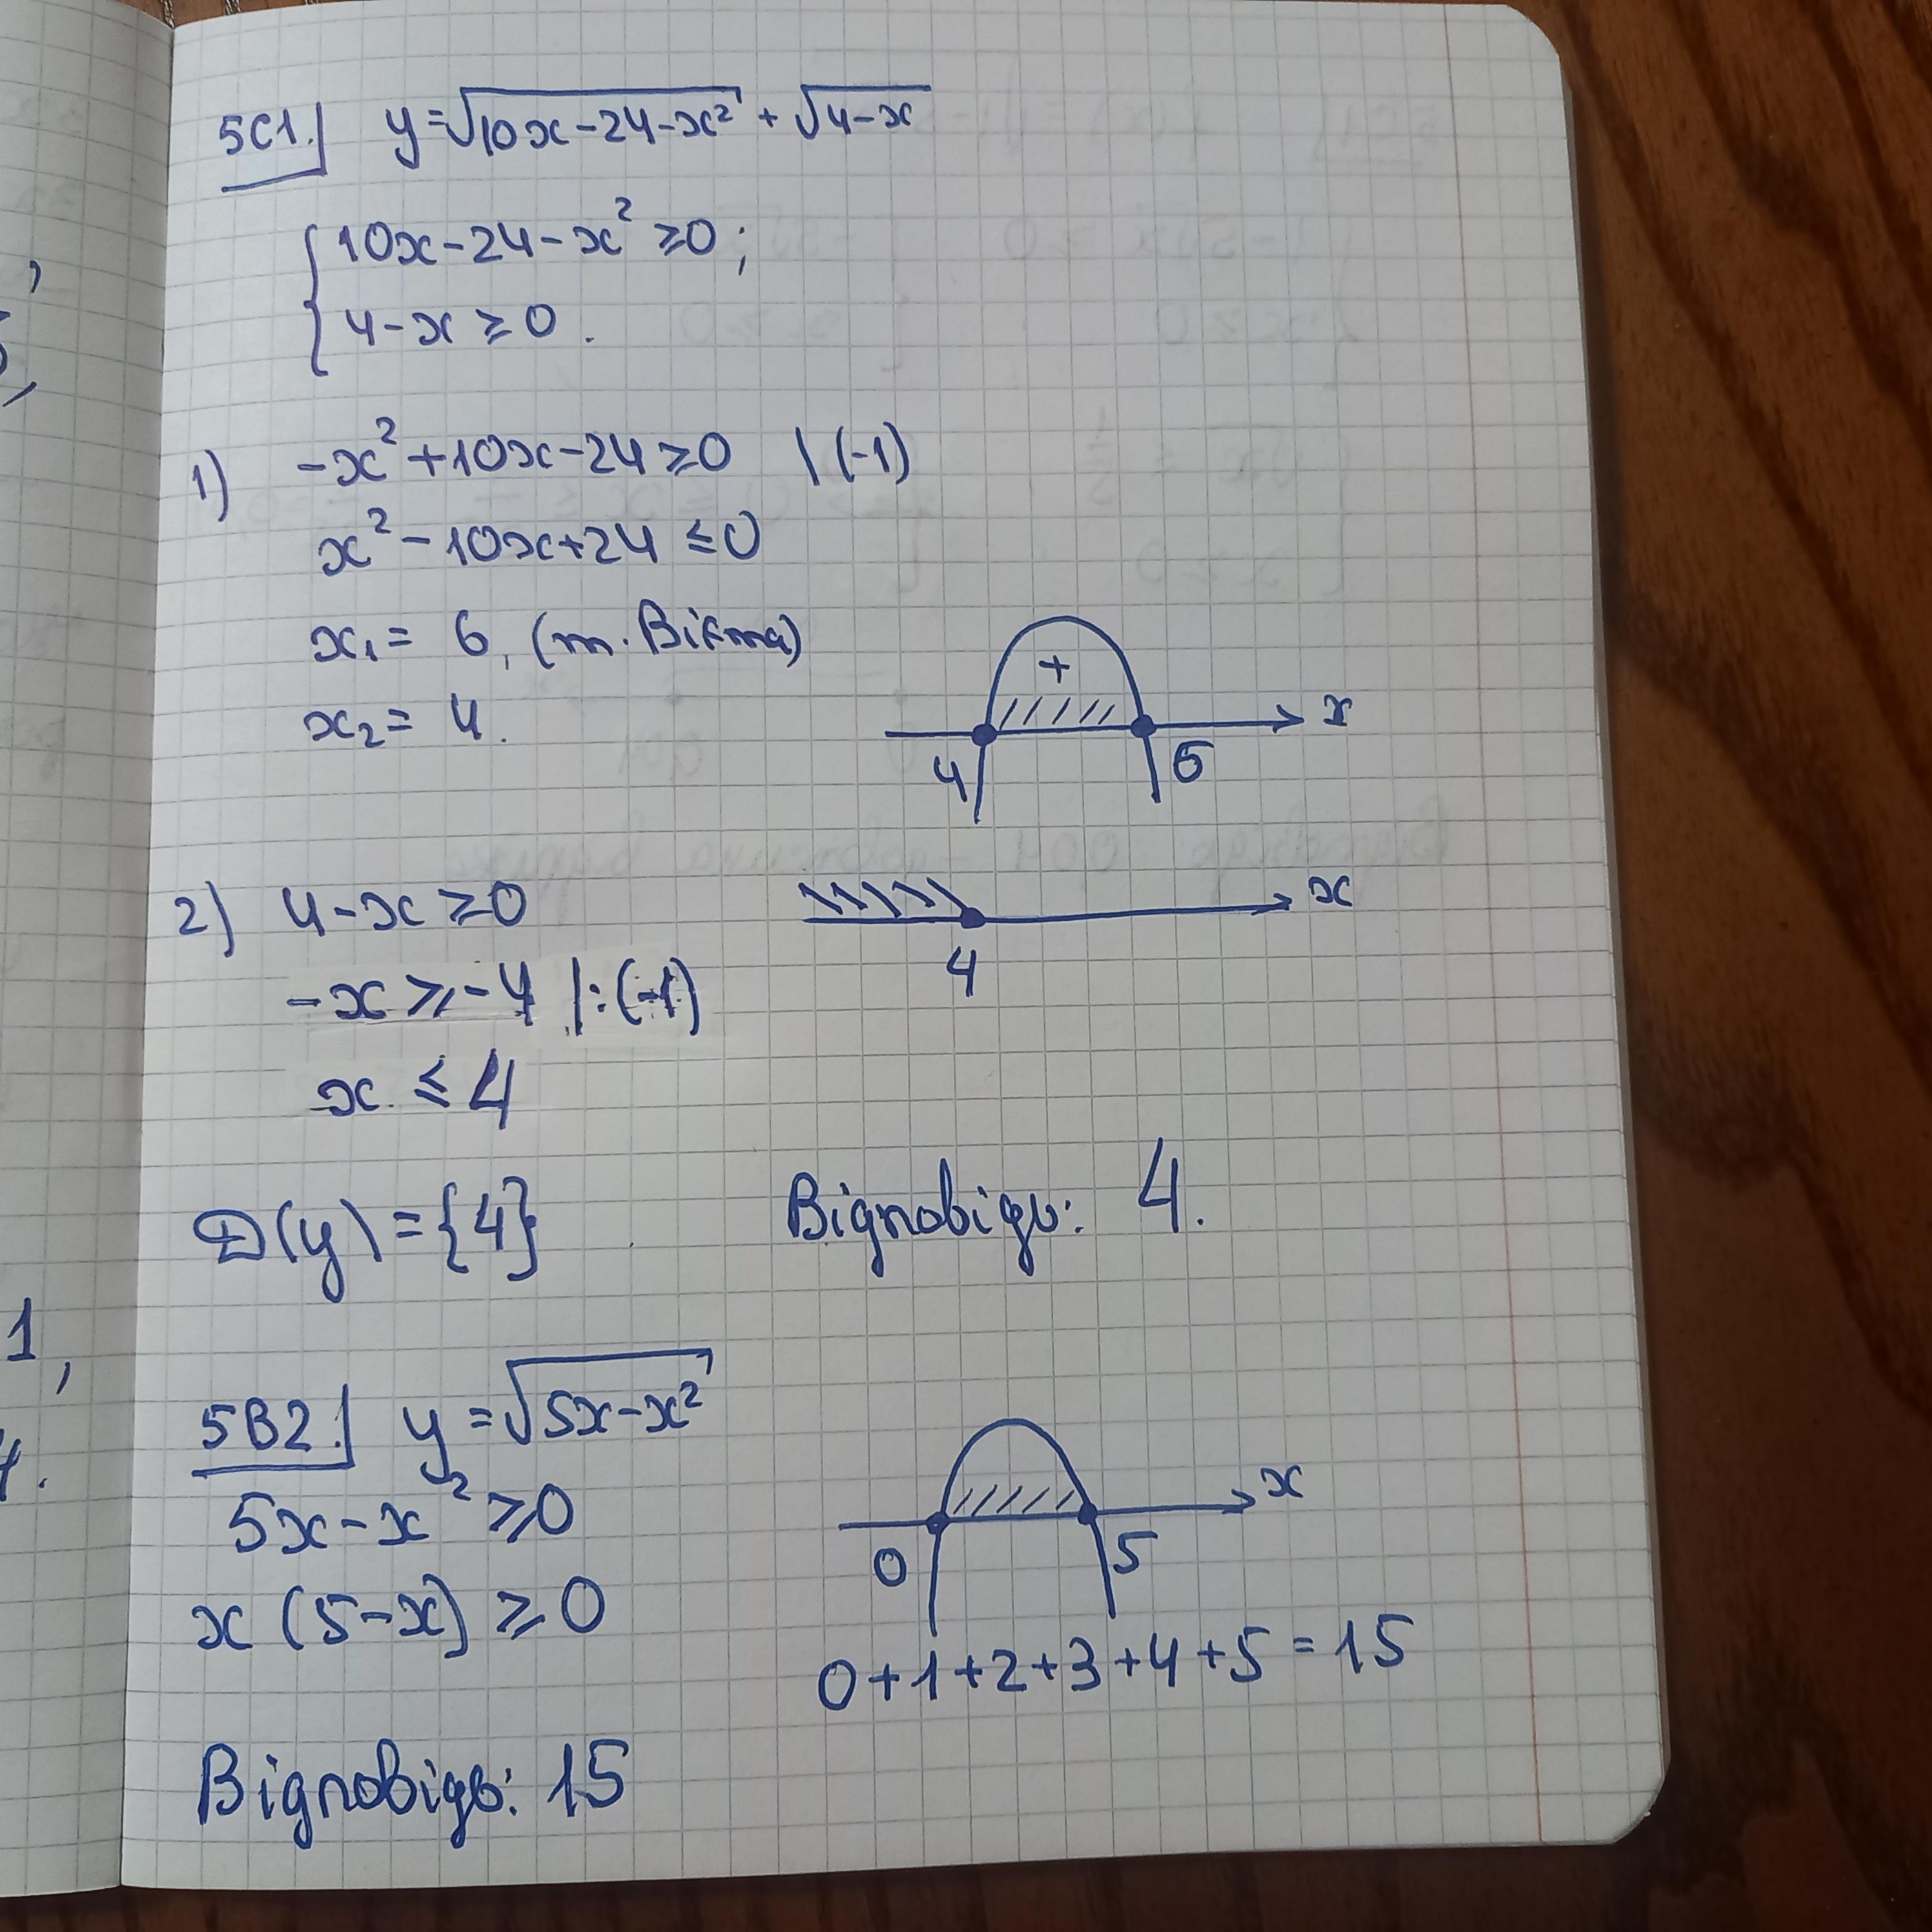 5C1. y=√(10x-24-x²) + √(4-x)
{ 10x-24-x² ≥0;
4-x ≥ 0.
1) -x²+10x-24≥0 | (-1)
x²-10x+24 ≤0
x₁= 6, (т. Вієта)
x₂= 4.
+
4 6 x
2) 4-x ≥0
-x ≥ -4 |:(-1)
x ≤ 4
x
4
D(y)={4}
Відповідь: 4.
5B2. y=√(5x-x²)
5x-x² ≥0
x (5-x) ≥ 0
0 5 x
0+1+2+3+4+5=15
Відповідь: 15
1,